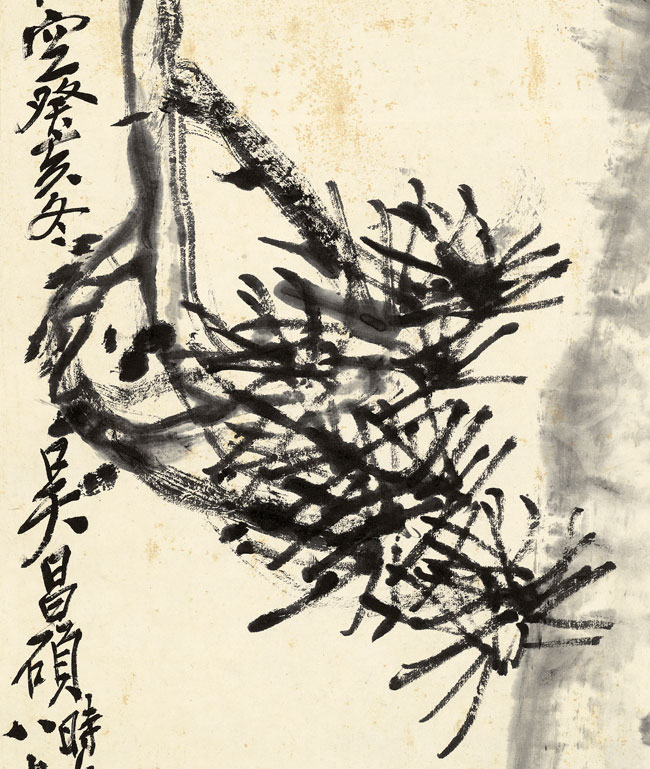 空癸亥冬吳昌碩
時
八